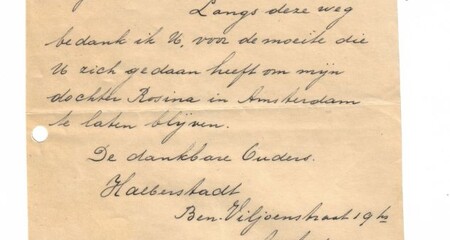 Langs deze weg
bedank ik U, voor de moeite die
U zich gedaan heeft om mijn
dochter Rosina in Amsterdam
te laten blijven.
De dankbare Ouders.
Halberstadt
Ben-Viljoenstraat 19 hs